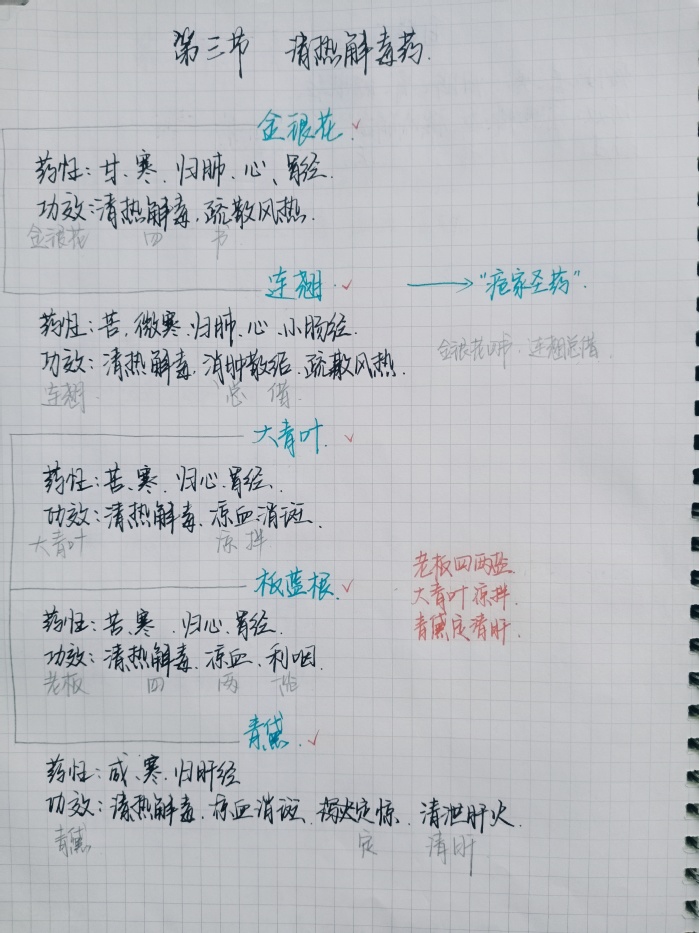 第三节 清热解毒药.
金银花
药性:甘、寒.归肺、心、胃经.
功效:清热解毒,疏散风热.
金银花 四 书
连翘 → "疮家圣药".
药性:苦,微寒.归肺、心、小肠经.
功效:清热解毒,消肿散结,疏散风热.
金银花四书.连翘总借.
连翘 总 借
大青叶
药性:苦、寒.归心、胃经.
功效:清热解毒,凉血消斑.
大青叶 凉拌
老板四两盐.
大青叶凉拌.
青黛定清肝.
板蓝根
药性:苦、寒.归心、胃经.
功效:清热解毒,凉血,利咽.
老板 四 两
青黛
药性:咸、寒.归肝经
功效:清热解毒,凉血消斑,泻火定惊,清泄肝火.
青黛 定 清肝